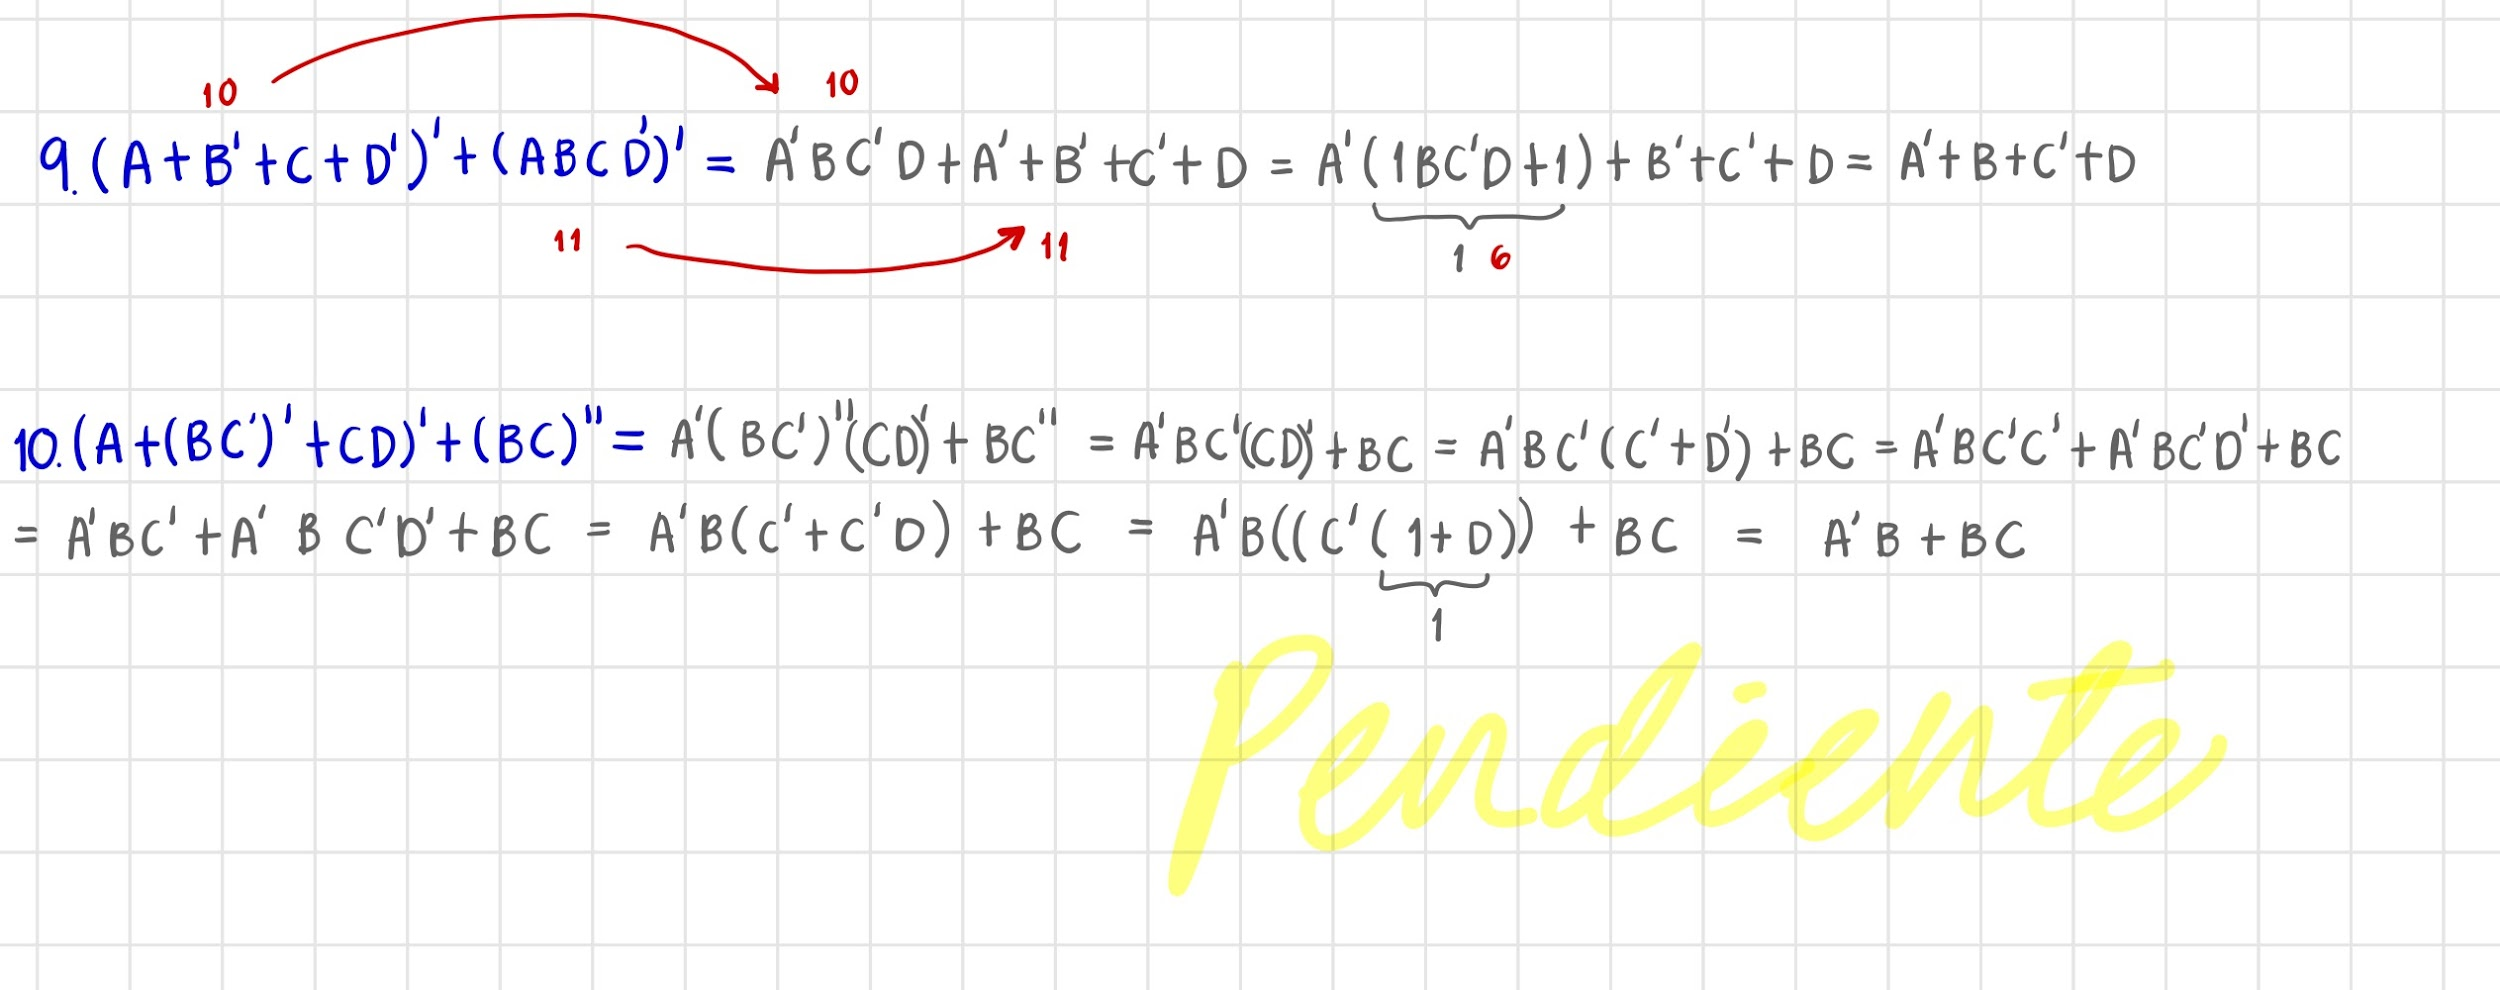 10 10
9. (A+B'+C+D')' + (ABCD')' = A'BC'D+A'+B'+C'+D = A'(1BC'D+1)+B'+C'+D = A'+B+C'+D
11 11 1 6
10. (A+(BC')'+CD)'+(BC)'' = A'(BC')''(CD)'+BC'' = A'BC'(CD)'+BC = A'BC'(C'+D')+BC = A'BC'C'+A'BC'D'+BC
= A'BC'+A'BC'D'+BC = A'B(C'+C'D)+BC = A'B((C'(1+D))+BC = A'B+BC
1
Pendiente